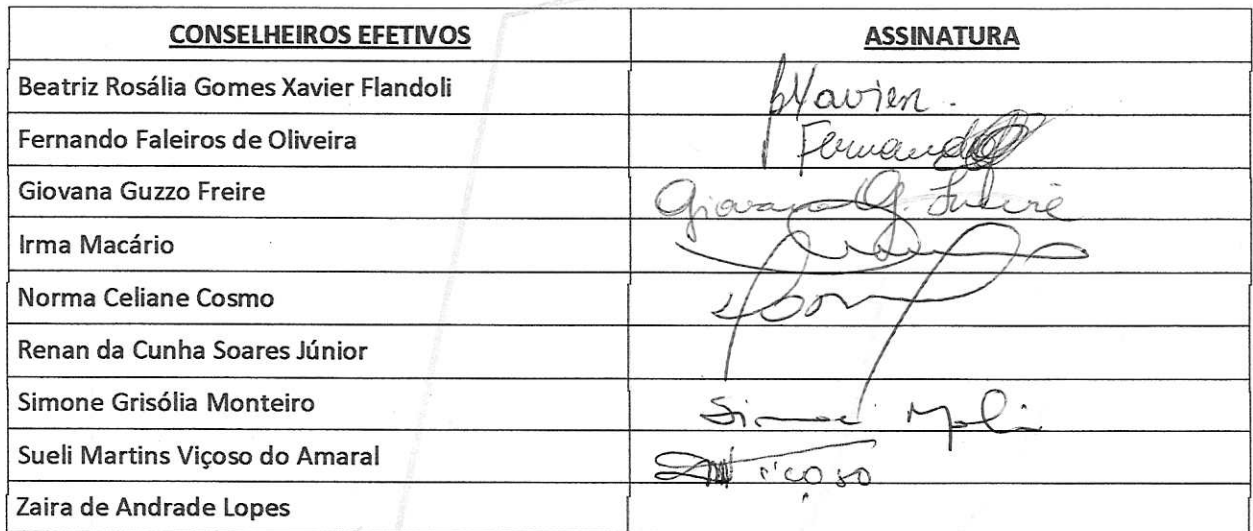 CONSELHEIROS EFETIVOS ASSINATURA
Beatriz Rosália Gomes Xavier Flandoli bXavier.
Fernando Faleiros de Oliveira Fernando
Giovana Guzzo Freire Giovana G. Freire
Irma Macário
Norma Celiane Cosmo
Renan da Cunha Soares Júnior
Simone Grisólia Monteiro
Sueli Martins Viçoso do Amaral Viçoso
Zaira de Andrade Lopes